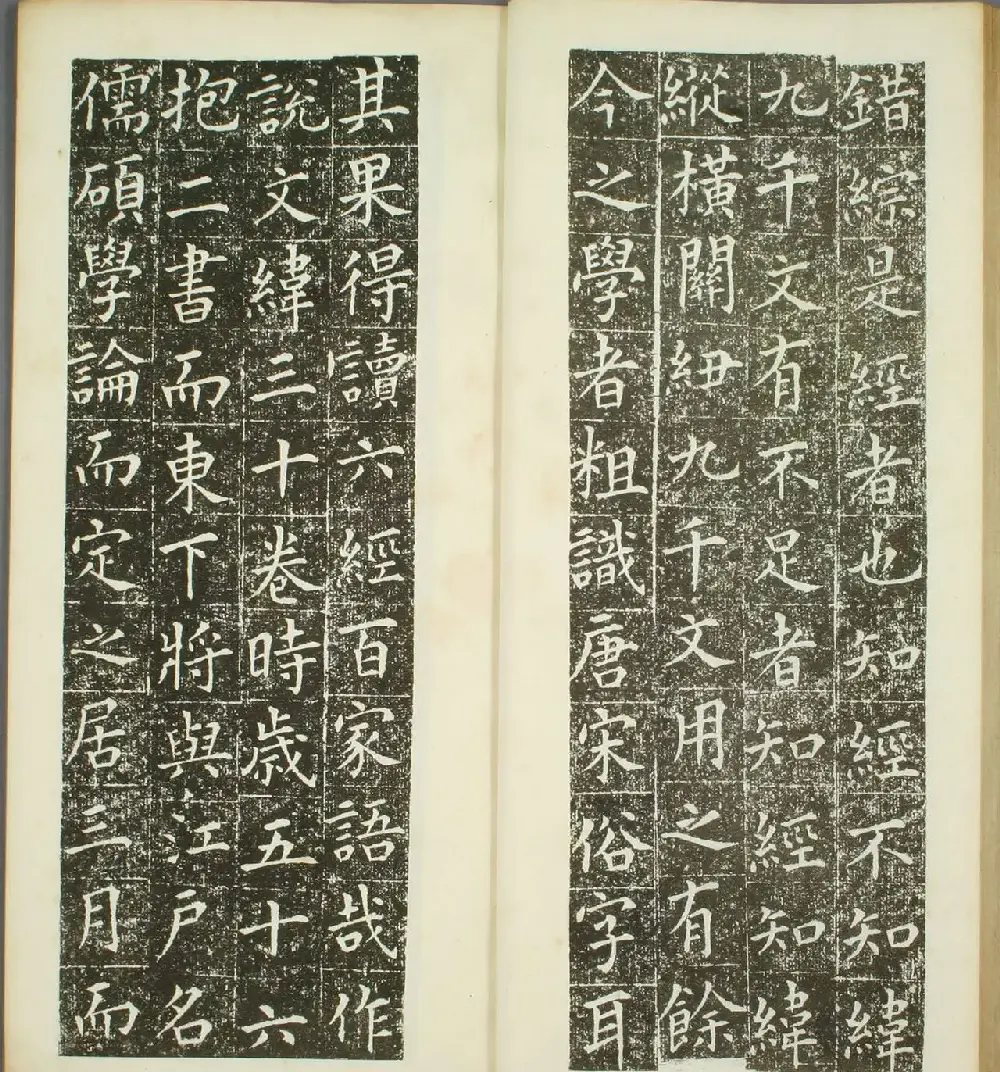 錯綜是經者也知經不知緯
九千文有不足者知經知緯
縱橫關紐九千文用之有餘
今之學者粗識唐宋俗字耳
其果得讀六經百家語哉作
說文緯三十卷時歲五十六
抱二書而東下將與江戶名
儒碩學論而定之居三月而